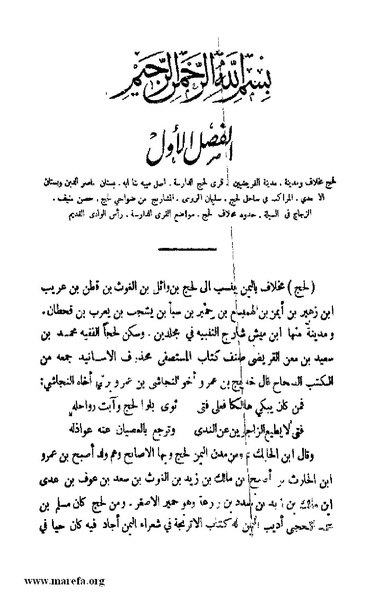 بسم الله الرحمن الرحيم
الفصل الأول
لحج مخلاف ومدينة . مدينة القريضيين . قرى لحج الدارسة . اصل ميبه بنا ابه . بستان ناصر الدين وبستان
الاعدي . المراكب في ساحل لحج . سلهان الروى . المشاريج من ضواحي لحج . حصن منيف .
الزجاج في السيلة . حدود مخلاف لحج . مواضع القرى الدارسة . رأس الوادي القديم
( لحج ) مخلاف باليمن ينسب الى لحج بن وائل بن الغوث بن قطن بن عريب
ابن زهير بن أيمن بن الهميسع بن حمير بن سبأ بن يشجب بن يعرب بن قحطان .
ومدينة منها ابن ميش شارح التنبيه في مجلدين . وسكن لحجاً الفقيه محمد بن
سعيد بن معن القريضي صنف كتاب المستصفى محذوف الاسانيد جمعه من
الكتب الصحاح قال خديج بن عمرو أخو النجاشي بن عمرو يرثي أخاه النجاشي:
فمن كان يبكي هالكا فعلى فتى ثوى بلوا لحج وآبت رواحله
فتى لا يطيع الزاجرين عن الندى وترجع بالعصيان عنه عواذله
وقال ابن الحائك ومن مدن اليمن لحج وبها الاصابح وهم ولد أصبح بن عمرو
ابن الحارث بن أصبح بن مالك بن زيد بن الغوث بن سعد بن عوف بن عدى
ابن مالك بن زيد بن سدد بن زرعة وهو حمير الاصغر . ومن لحج كان مسلم بن
محمد اللحجي أديب اليمن له كتاب الاترنجة في شعراء اليمن أجاد فيه كان حيا في
www.marefa.org